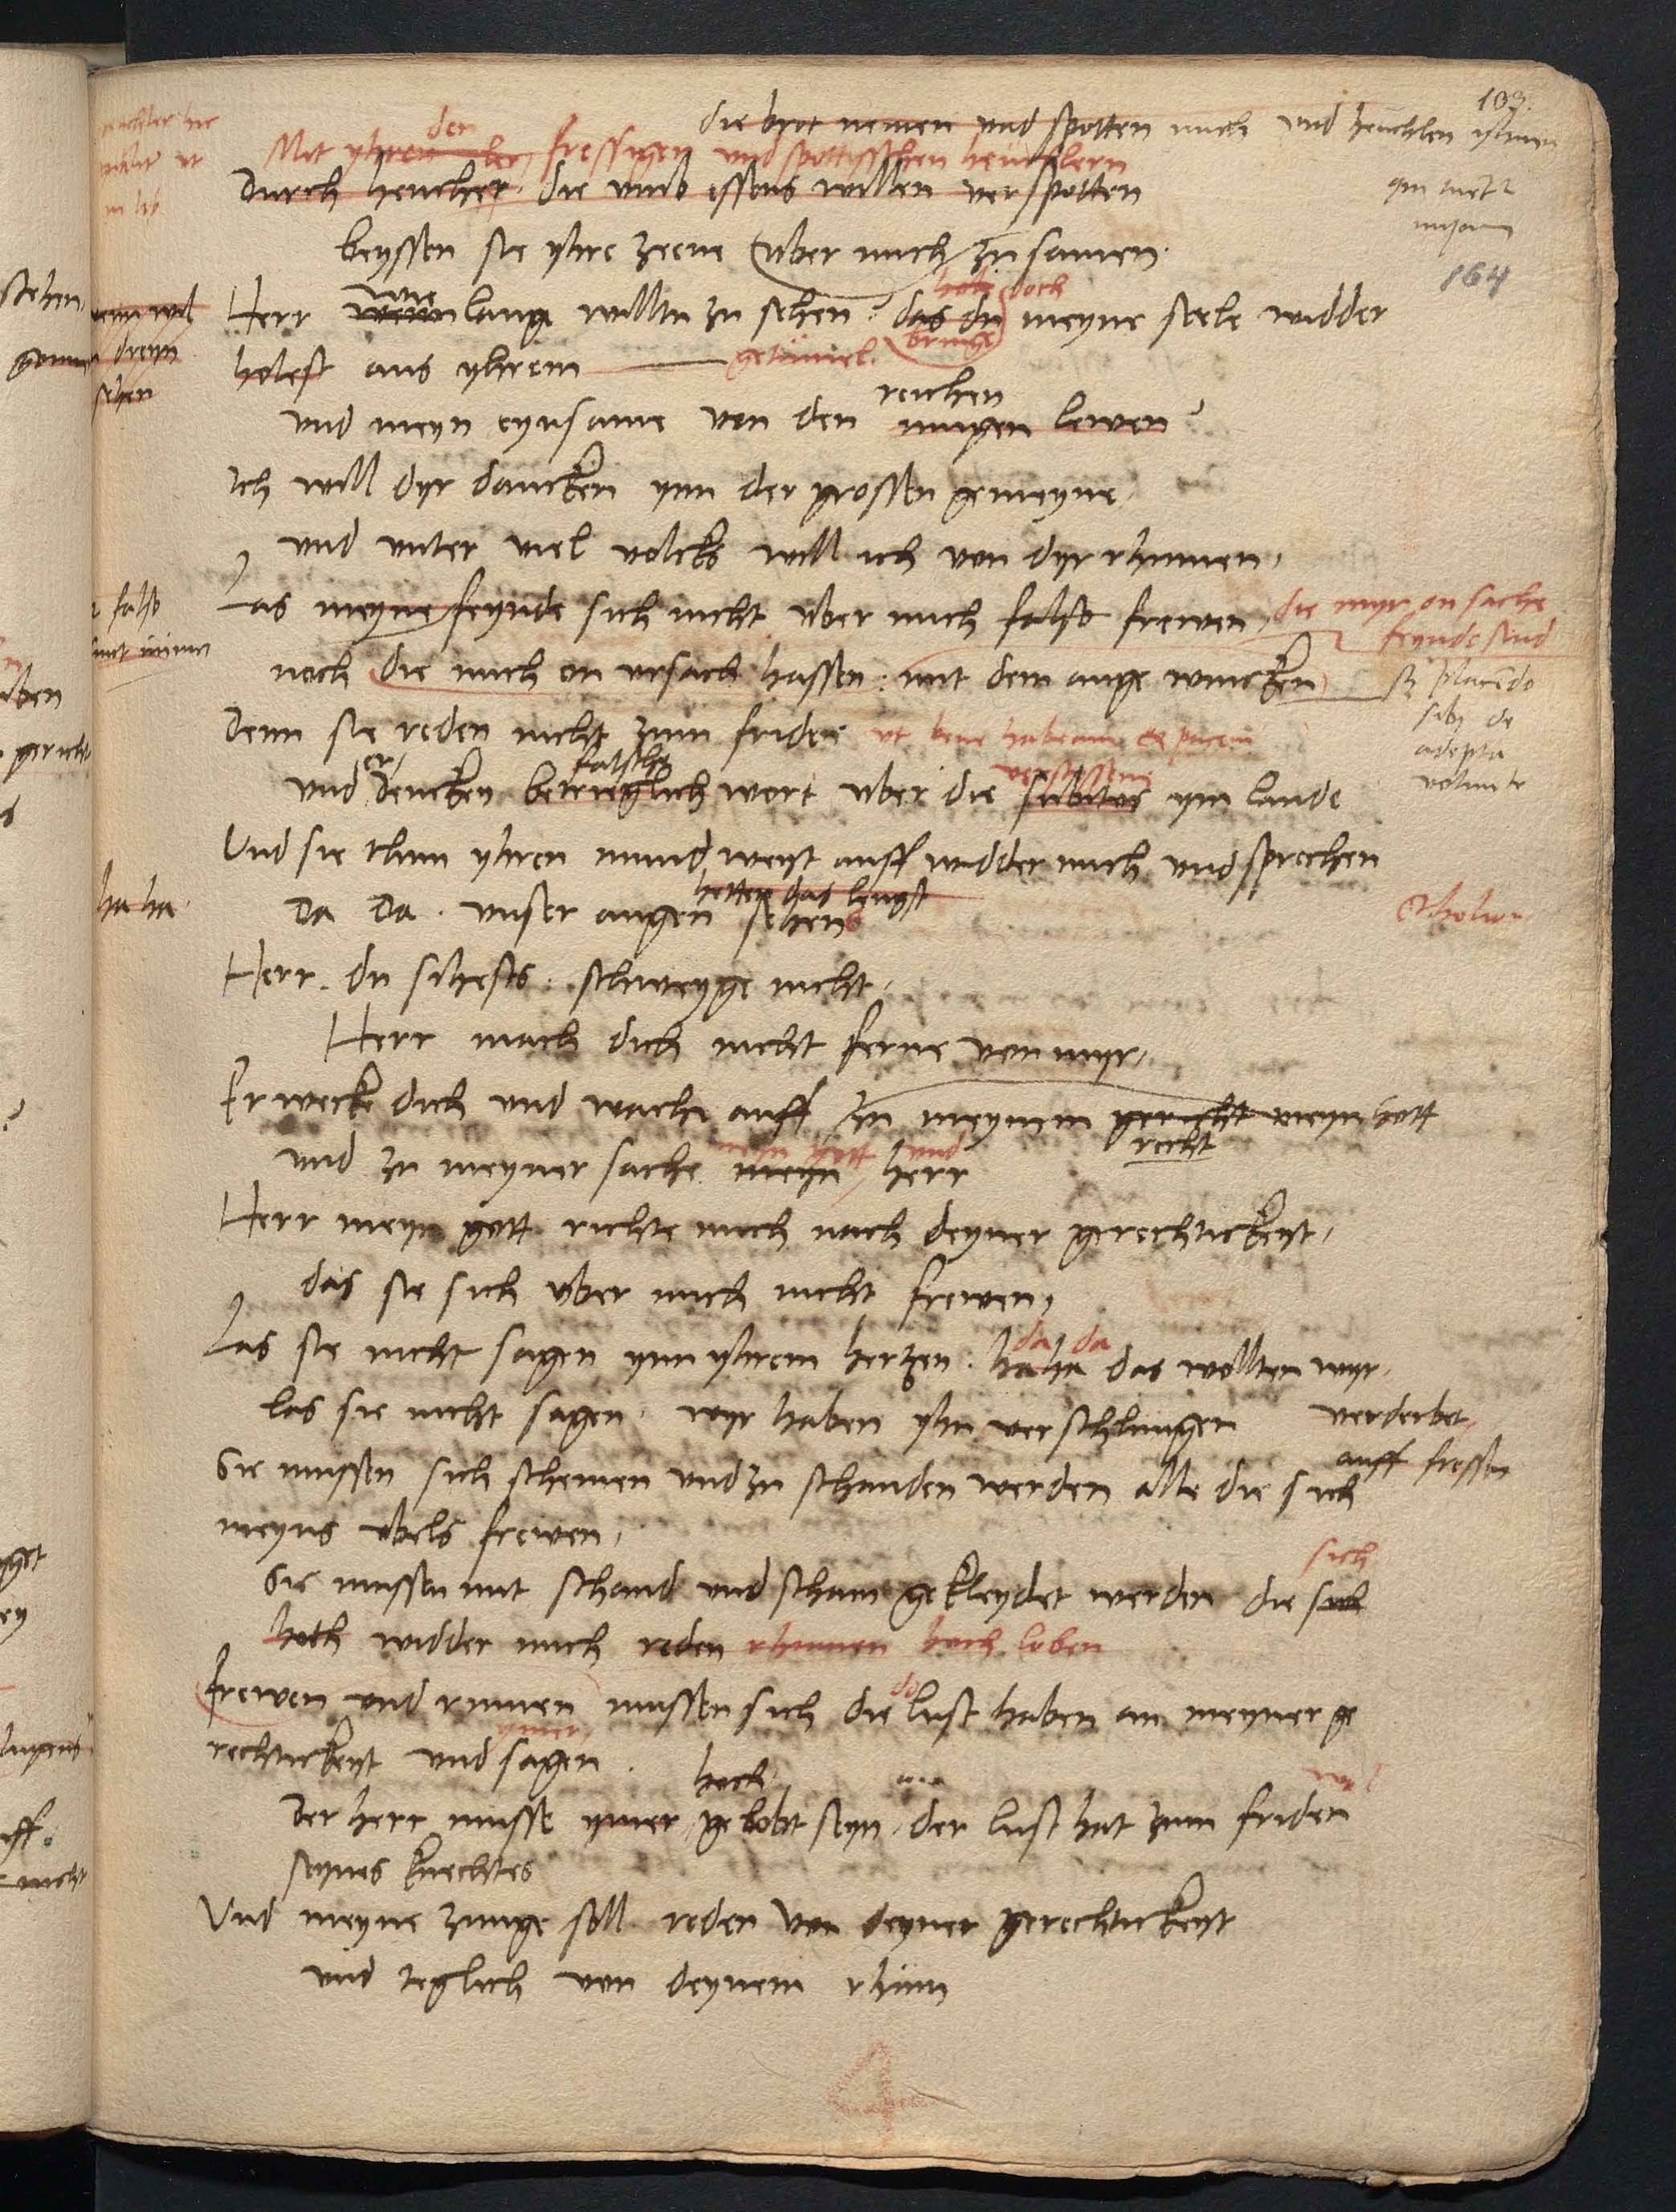 103.
die brot nemen und spotten mich und heuchlen
Mit yhren der fressigen und spottisschen heuchlern
Durch heucher die umb essens willen verspotten
beyssen sie yhre zeene uber mich zu samen.
164
wie hole doch
Herr wenn lange willtu zu sehen? das du meyne seele widder
bringe
holest aus yhrem getümel.
reichen
und meyn eynsame von den iungen lewen?
Ich will dyr dancken ynn der grossen gemeyne
und unter viel volcks will ich von dyr rhumen,
Las meyne feynde sich nicht uber mich falsch frewen, die myr on sache
feynde sind
noch die mich on ursach hassen: mit dem auge wincken
placendo
sibi de
adepta
Denn sie reden nicht zum fride ut bene habeam
er falsche
und dencken betrieglich wort uber die subitos ym lande
Und sie thun yhren mund weyt auff widder mich und sprechen
hetten das lengst
Da Da. unser augen sehen
ha ha.
Herr. du sihests. schweyge nicht,
Herr mach dich nicht ferne von myr,
Erwecke dich und wache auff zu meynem gericht meyn Gott
recht
meyn gott und
und zu meyner sache meyn herr
Herr meyn gott richte mich nach deyner gerechtickeyt,
das sie sich uber mich nicht frewen,
da da
Las sie nicht sagen ynn yhrem hertzen. ha ha das wollten wyr.
las sie nicht sagen. wyr haben yhn verschlungen verderbet
auff fressen
Sie mussen sich schemen und zu schanden werden alle die sich
meyns ubels frewen,
sich
Sie mussen mit schand und scham gekleydet werden die sich
hoch widder mich reden rhumen hoch loben
frewen und rumen mussen sich die lust haben an meyner ge
ymer
rechtickeyt und sagen.
hoch
Der herr musse ymer gelobt seyn, der lust hat zum friden
seynes knechtes
Und meyne zunge soll reden von deyner gerechtickeyt
und teglich von deynem rhum
4